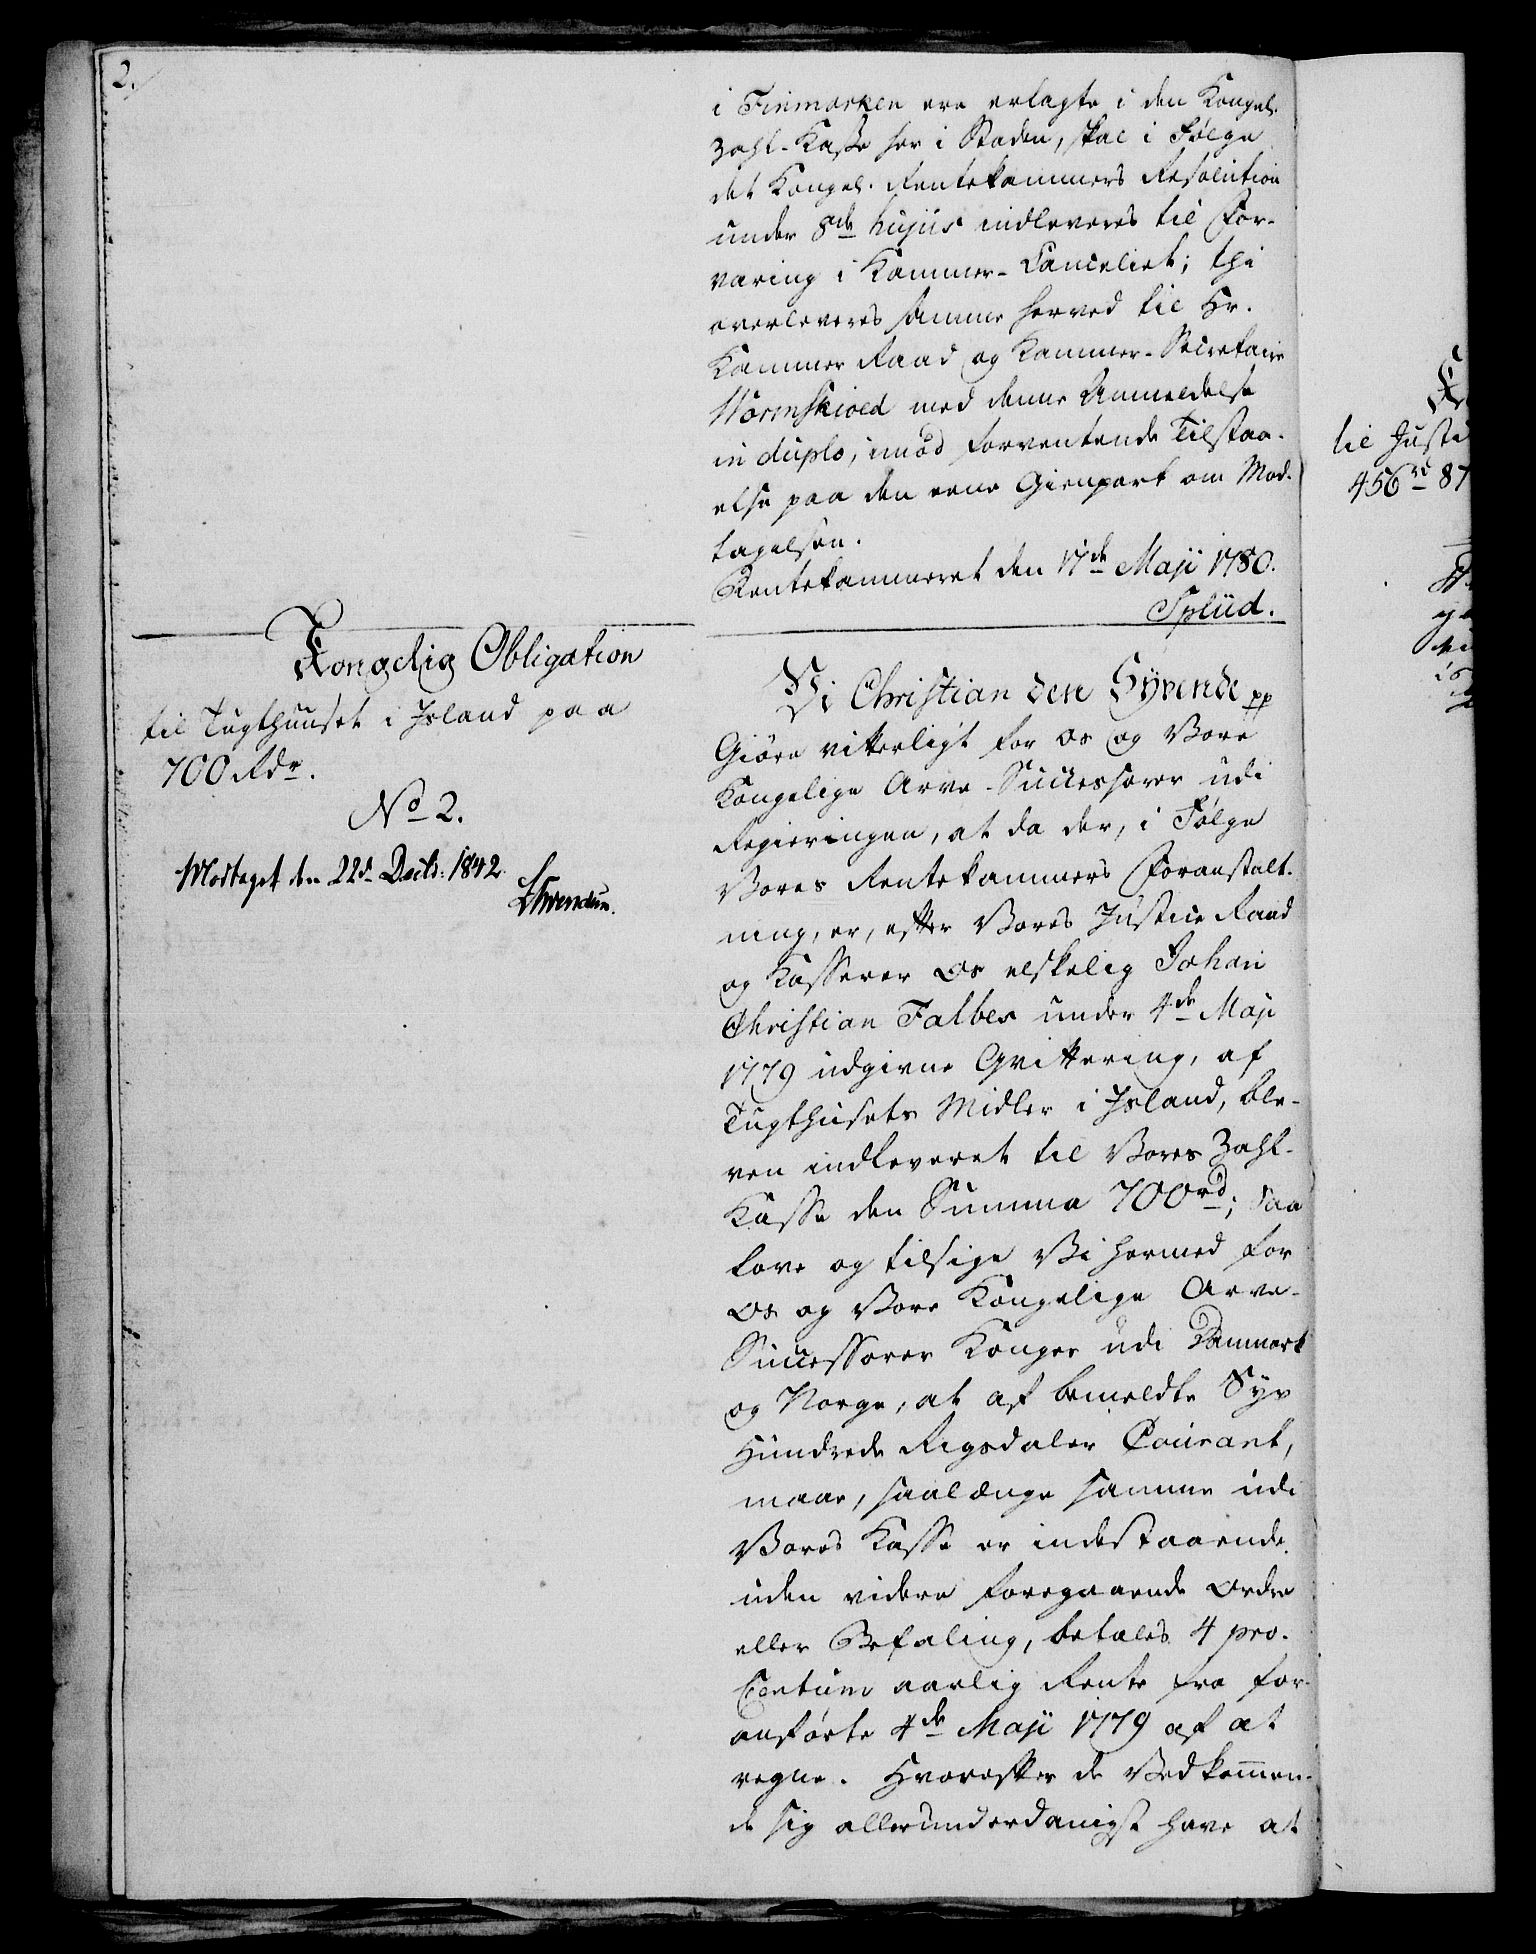 2.
i Finmarken ere erlagte i den Kongel.
Zahl-Kasse her i Staden, skal i Følge
det Kongel. Rentekammers Resolution
under 8de hujus indleveres til For-
varing i Kammer-Canceliet; thi
overleveres samme herved til Hr.
Kammer Raad og Kammer-Secretaire
Wormskiold med denne Anmeldelse
in duplo, imod forventende Tilstaa-
else paa den eene Gienpart om Mod-
tagelsen.
Rentekammeret den 17de Maji 1780.
Splüd.
Kongelig Obligation
til Tugthuuset i Island paa
700 Rdr.
No 2.
Modtaget den 22d. Decbr. 1842.
Vi Christian den Syvende pp
Giøre vitterligt for os og Vore
Kongelige Arve-Successorer udi
Regieringen, at da der, i Følge
Vores Rentekammers Foranstalt-
ning, er, efter Vores Justice Raad
og Kasserer Os elskelig Johan
Christian Falbes under 4de Maji
1779 udgivne Qvittering, af
Tugthusets Midler i Island, ble-
ven indleveret til Vores Zahl-
Kasse den Summa 700rd; saa
love og tilsige Vi hermed for
Os og Vore Kongelige Arve-
Successorer Konger udi Danmark
og Norge, at af bemeldte Syv
Hundrede Rigsdaler Courant,
maae, saalænge samme udi
Vores Kasse er indestaaende
uden videre foregaaende Ordre
eller Befaling, betales 4 pro-
Centum aarlig Rente fra for-
anførte 4de Maji 1779 af at
regne. Hvorefter de Vedkommen-
de sig allerunderdanigst have at
til Justi
456rd 87